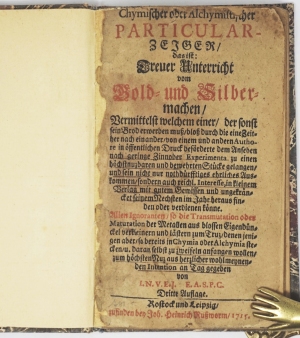 Chymischer oder Alchymistischer
PARTICULAR-
ZEIGER/
das ist:
Treuer Unterricht
vom
Gold- und Silber-
machen/
Vermittelst welchem einer/ der sonst
sein Brod erwerben muß/ bloß durch die eine Zeit-
her nach einander/ von einem und andern Autho-
re in öffentlichen Druck beförderte dem Ansehen
nach geringe Experimenta zu einen
höchstnutzbaren und bewehrten Stücke gelangen/
und sein nicht nur nothdürfftiges ehrliches Aus-
kommen/ sondern auch reichl. Interesse, in kleinem
Verlag mit gutem Gewissen und
seines Nechsten im Jahr heraus fin-
den oder verdienen könne.
Allen Ignoranten/ so die Transmutation oder
Maturation der Metallen aus blossen Eigendün-
ckel verkleinern und lästern zum Trutz/ denen jeni-
gen aber/ so bereits in Chymia oder Alchymia ste-
cken/ u. daran selbst zu zweifeln anfangen wollen/
zum höchsten Nutz aus herzlicher wohlmeynen-
den Intention an Tag gegeben
von
I.N.V.E.J. E.A.S.P.C.
Dritte Auflage.
Rostock und Leipzig/
zu finden bey Joh. Heinrich Rußworm/ 1715.